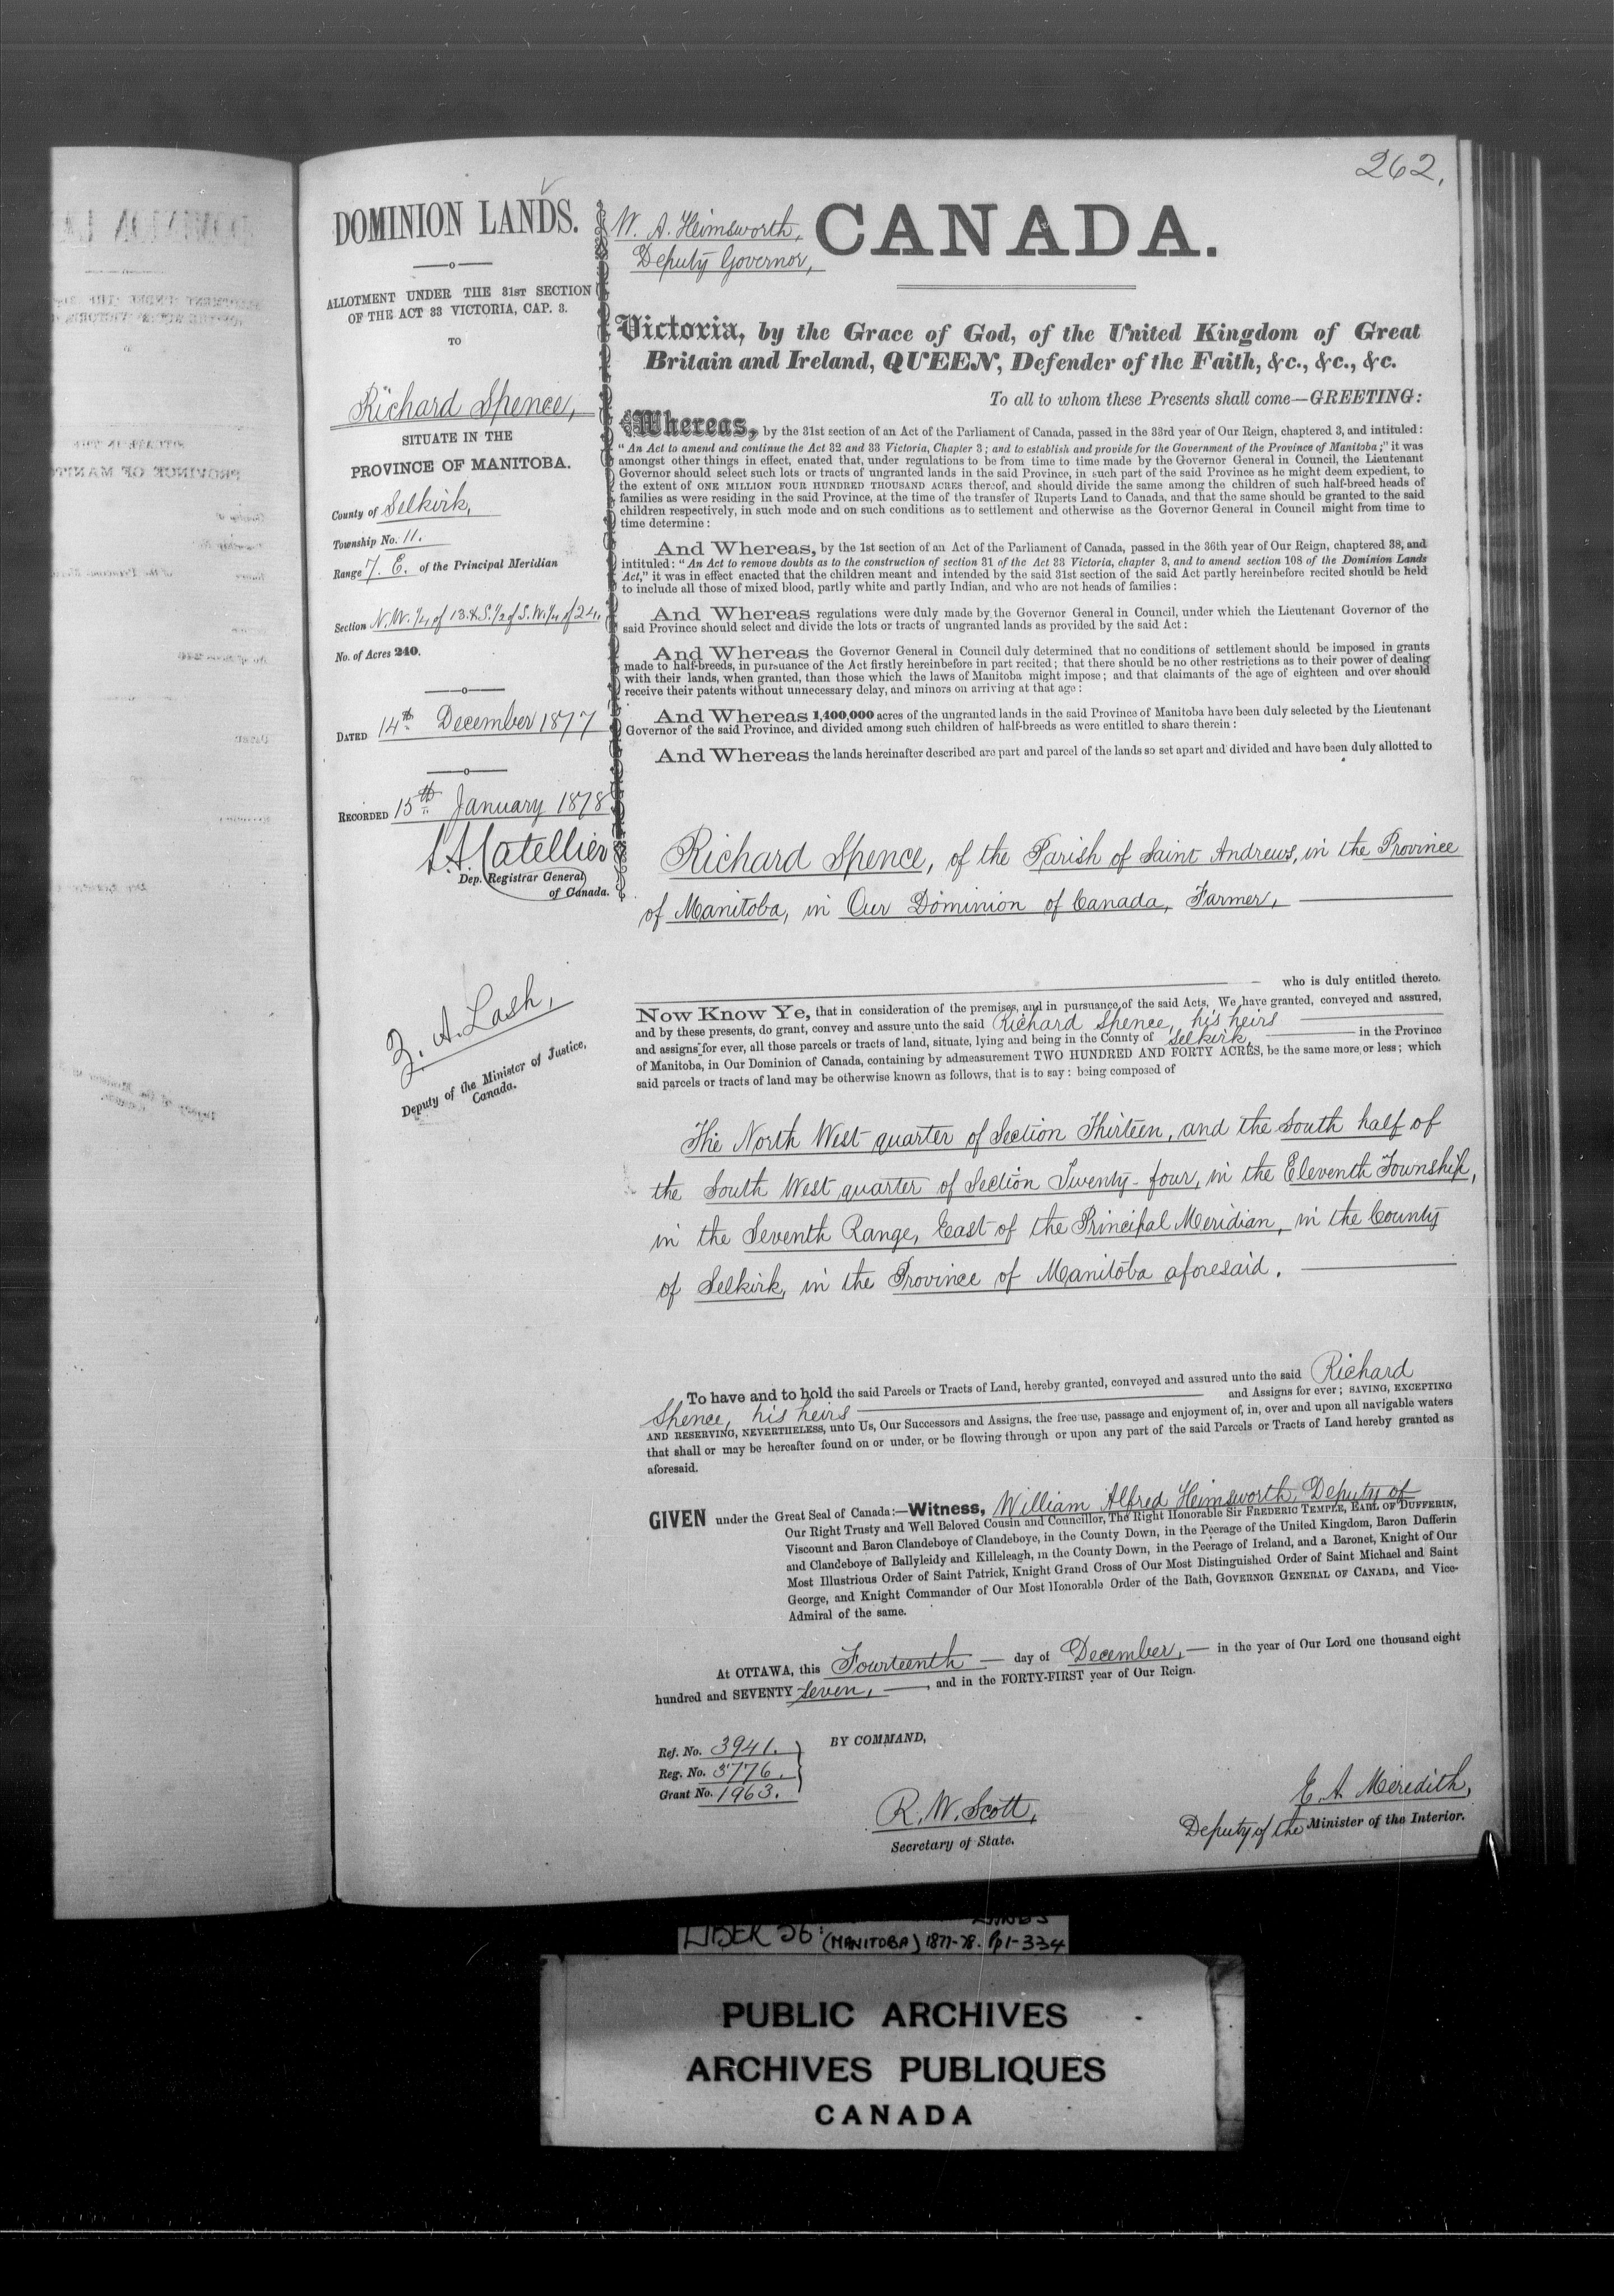 262.
DOMINION LANDS.
ALLOTMENT UNDER THE 31ST SECTION
OF THE ACT 33 VICTORIA, CAP. 3.
TO
Richard Spence,
SITUATE IN THE
PROVINCE OF MANITOBA.
County of Selkirk,
Township No. 11.
Range 7. E. of the Principal Meridian
Section N.W. 1/4 of 13. & S. 1/2 of S.W. 1/4 of 24.
No. of Acres 240.
DATED 14th December 1877
RECORDED 15th January 1878
L. A. Catellier
Dep. Registrar General
of Canada.
Z. A. Lash,
Deputy of the Minister of Justice,
Canada.
W. A. Heimsworth,
Deputy Governor,
CANADA.
Victoria, by the Grace of God, of the United Kingdom of Great
Britain and Ireland, QUEEN, Defender of the Faith, &c., &c., &c.
To all to whom these Presents shall come—GREETING:
Whereas, by the 31st section of an Act of the Parliament of Canada, passed in the 33rd year of Our Reign, chaptered 3, and intituled:
"An Act to amend and continue the Act 32 and 33 Victoria, Chapter 3; and to establish and provide for the Government of the Province of Manitoba;" it was
amongst other things in effect, enated that, under regulations to be from time to time made by the Governor General in Council, the Lieutenant
Governor should select such lots or tracts of ungranted lands in the said Province, in such part of the said Province as he might deem expedient, to
the extent of ONE MILLION FOUR HUNDRED THOUSAND ACRES thereof, and should divide the same among the children of such half-breed heads of
families as were residing in the said Province, at the time of the transfer of Ruperts Land to Canada, and that the same should be granted to the said
children respectively, in such mode and on such conditions as to settlement and otherwise as the Governor General in Council might from time to
time determine:
And Whereas, by the 1st section of an Act of the Parliament of Canada, passed in the 36th year of Our Reign, chaptered 38, and
intituled: "An Act to remove doubts as to the construction of section 31 of the Act 33 Victoria, chapter 3, and to amend section 108 of the Dominion Lands
Act," it was in effect enacted that the children meant and intended by the said 31st section of the said Act partly hereinbefore recited should be held
to include all those of mixed blood, partly white and partly Indian, and who are not heads of families:
And Whereas regulations were duly made by the Governor General in Council, under which the Lieutenant Governor of the
said Province should select and divide the lots or tracts of ungranted lands as provided by the said Act:
And Whereas the Governor General in Council duly determined that no conditions of settlement should be imposed in grants
made to half-breeds, in pursuance of the Act firstly hereinbefore in part recited; that there should be no other restrictions as to their power of dealing
with their lands, when granted, than those which the laws of Manitoba might impose; and that claimants of the age of eighteen and over should
receive their patents without unnecessary delay, and minors on arriving at that age:
And Whereas 1,400,000 acres of the ungranted lands in the said Province of Manitoba have been duly selected by the Lieutenant
Governor of the said Province, and divided among such children of half-breeds as were entitled to share therein:
And Whereas the lands hereinafter described are part and parcel of the lands so set apart and divided and have been duly allotted to
Richard Spence, of the Parish of Saint Andrews, in the Province
of Manitoba, in Our Dominion of Canada, Farmer,
who is duly entitled thereto.
NOW KNOW YE, that in consideration of the premises, and in pursuance of the said Acts, We have granted, conveyed and assured,
and by these presents, do grant, convey and assure unto the said Richard Spence, his heirs
and assigns for ever, all those parcels or tracts of land, situate, lying and being in the County of Selkirk, in the Province
of Manitoba, in Our Dominion of Canada, containing by admeasurement TWO HUNDRED AND FORTY ACRES, be the same more or less; which
said parcels or tracts of land may be otherwise known as follows, that is to say: being composed of
The North West quarter of Section Thirteen, and the South half of
the South West quarter of Section Twenty-four, in the Eleventh Township,
in the Seventh Range, East of the Principal Meridian, in the County
of Selkirk, in the Province of Manitoba aforesaid.
To have and to hold the said Parcels or Tracts of Land, hereby granted, conveyed and assured unto the said Richard
Spence, his heirs and Assigns for ever; SAVING, EXCEPTING
AND RESERVING, NEVERTHELESS, unto Us, Our Successors and Assigns, the free use, passage and enjoyment of, in, over and upon all navigable waters
that shall or may be hereafter found on or under, or be flowing through or upon any part of the said Parcels or Tracts of Land hereby granted as
aforesaid.
GIVEN under the Great Seal of Canada:—Witness, William Alfred Heimsworth, Deputy of
Our Right Trusty and Well Beloved Cousin and Councillor, The Right Honorable Sir FREDERIC TEMPLE, EARL OF DUFFERIN,
Viscount and Baron Clandeboye of Clandeboye, in the County Down, in the Peerage of the United Kingdom, Baron Dufferin
and Clandeboye of Ballyleidy and Killeleagh, in the County Down, in the Peerage of Ireland, and a Baronet, Knight of Our
Most Illustrious Order of Saint Patrick, Knight Grand Cross of Our Most Distinguished Order of Saint Michael and Saint
George, and Knight Commander of Our Most Honorable Order of the Bath, GOVERNOR GENERAL OF CANADA, and Vice-
Admiral of the same.
At OTTAWA, this Fourteenth day of December, in the year of Our Lord one thousand eight
hundred and SEVENTY Seven, and in the FORTY-FIRST year of Our Reign.
Ref. No. 3941.
Reg. No. 3776.
Grant No. 1963.
BY COMMAND,
R. W. Scott,
Secretary of State.
E. A. Meredith,
Deputy of the Minister of the Interior.
LIBER 56: (MANITOBA) 1877-78. Pp 1-334
PUBLIC ARCHIVES
ARCHIVES PUBLIQUES
CANADA